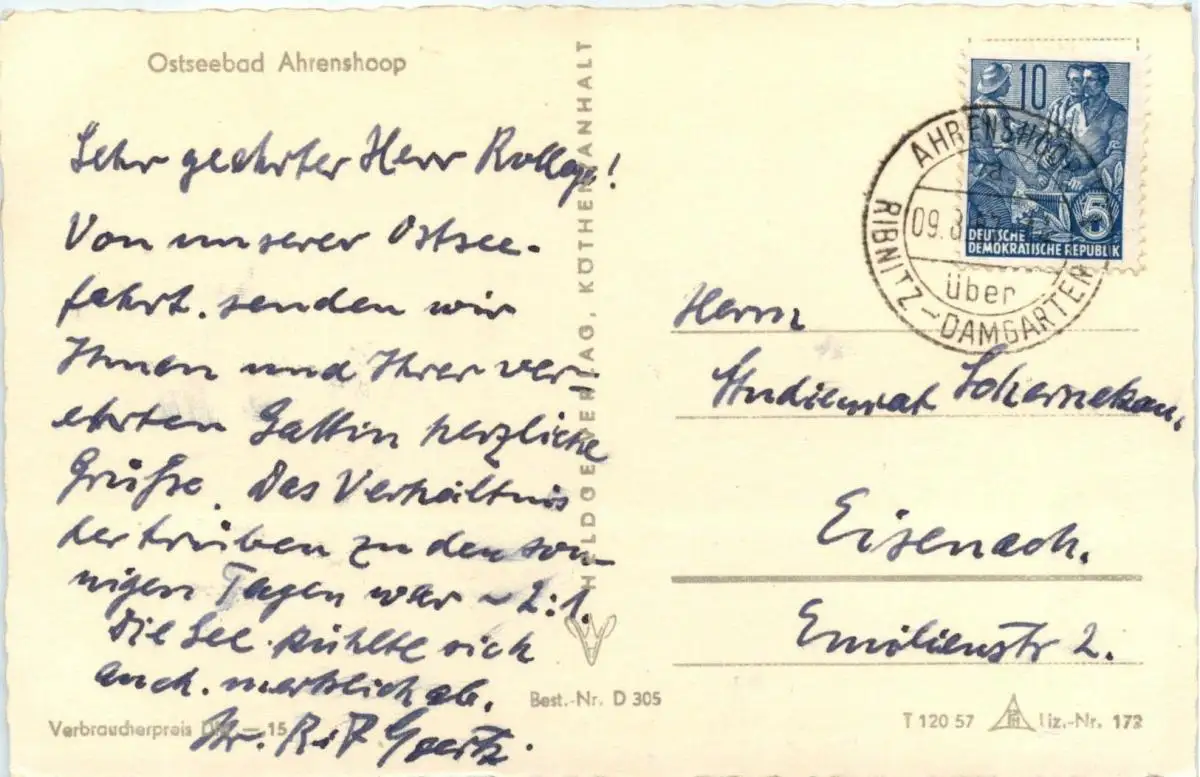 Ostseebad Ahrenshoop
Sehr geehrter Herr Kollege!
Von unserer Ostsee-
fahrt senden wir
Ihnen und Ihrer ver-
ehrten Gattin herzliche
Grüße. Das Verhältnis
der trüben zu den son-
nigen Tagen war ~ 2:1.
Die See kühlte sich
auch merklich ab.
Ihr
Verbraucherpreis DM —15
Best.-Nr. D 305
HELDGE-VERLAG, KÖTHEN/ANHALT
10
5
DEUTSCHE
DEMOKRATISCHE REPUBLIK
AHRENSHOOP
09.8
über
RIBNITZ-DAMGARTEN
Herrn
Studienrat
Eisenach.
Emilienstr 2.
T 120 57
Liz.-Nr. 172